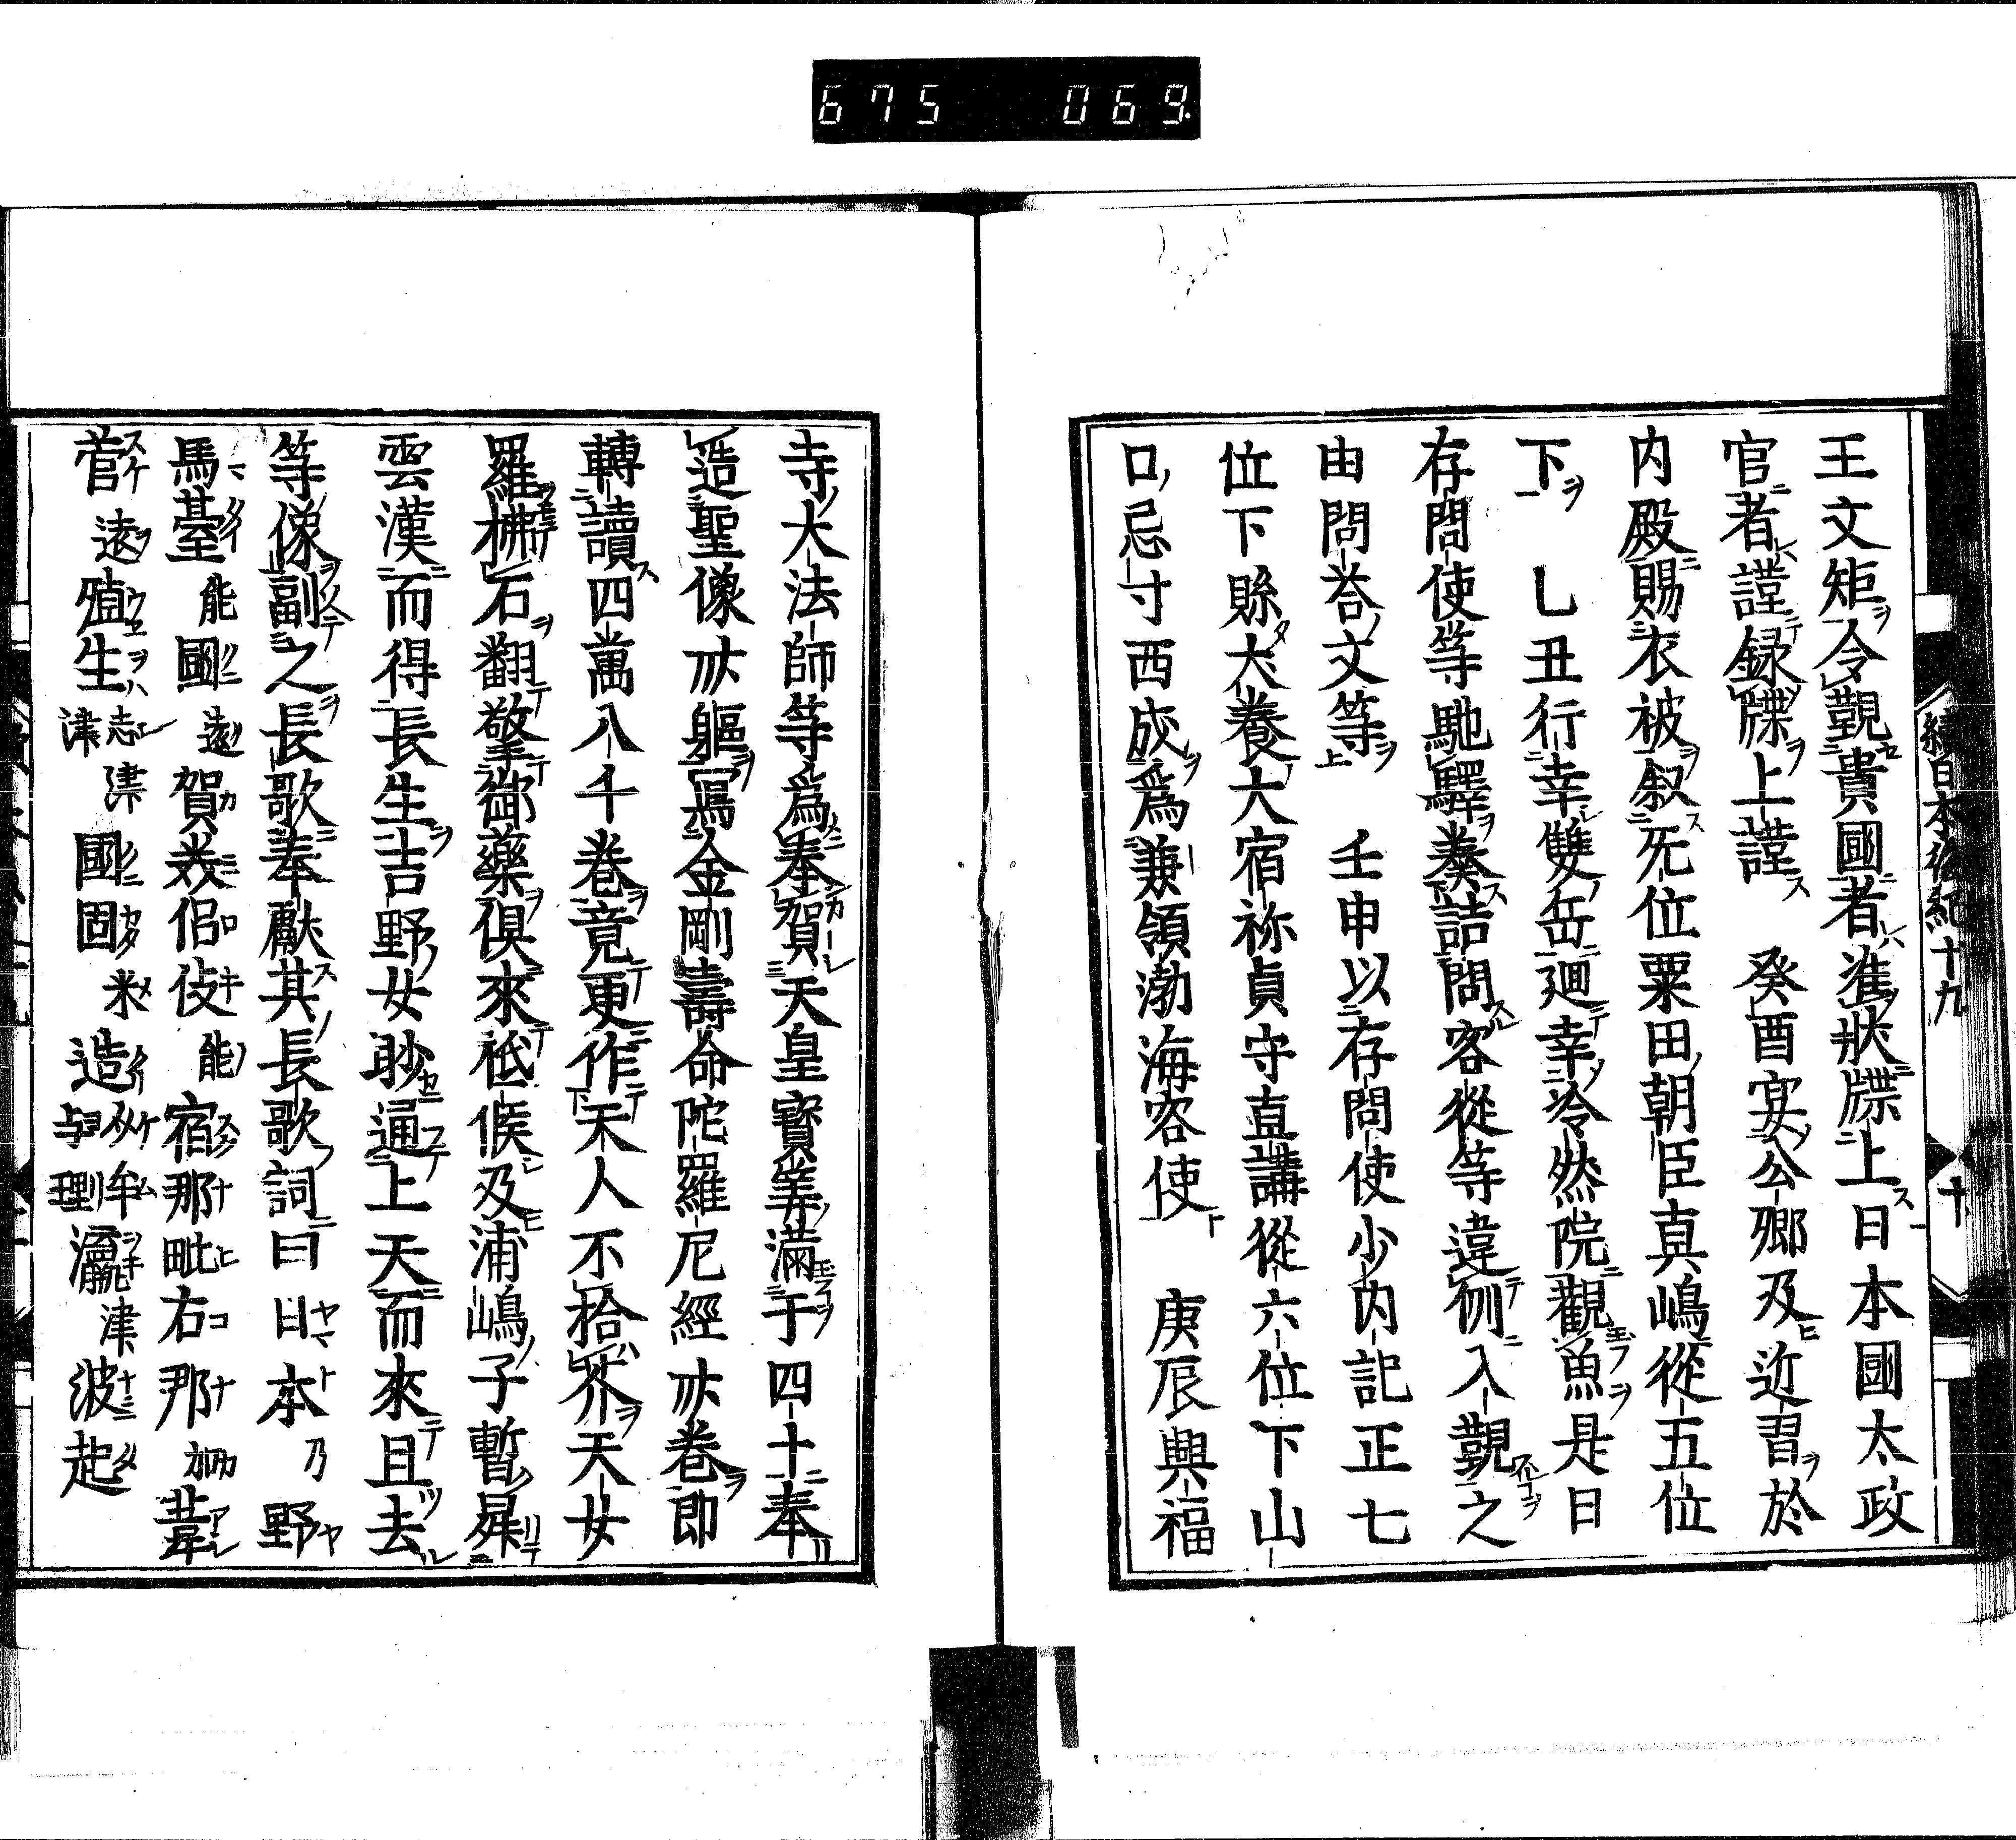 675 069
續日本後紀十九 十
王文矩令覲貴國者進狀牒上日本國太政
官者謹録牒上謹 癸酉宴公卿及近習於
内殿賜衣被叙无位粟田朝臣真嶋從五位
下 乙丑行幸雙岳廻幸冷然院觀魚是日
存問使等馳驛奏詰問客從等違例入覲之
由問荅文等 壬申以存問使少内記正七
位下縣犬養大宿祢貞守直講從六位下山
口忌寸西成為兼領渤海客使 庚辰興福
寺大法師等為奉賀天皇寳筭滿于四十奉
造聖像卌軀寫金剛壽命陀羅尼經卌巻即
轉讀四萬八千巻竟更作天人不拾芥天女
羅拂石翻擎御藥俱來祗候及浦嶋子暫昇
雲漢而得長生吉野女眇通上天而來且去
等像副之長歌奉獻其長歌詞曰 日本乃野
馬臺能國遠賀美侶伎能宿那毗古那加葦
菅遠殖生志津津國固米造介牟与理瀛津波起